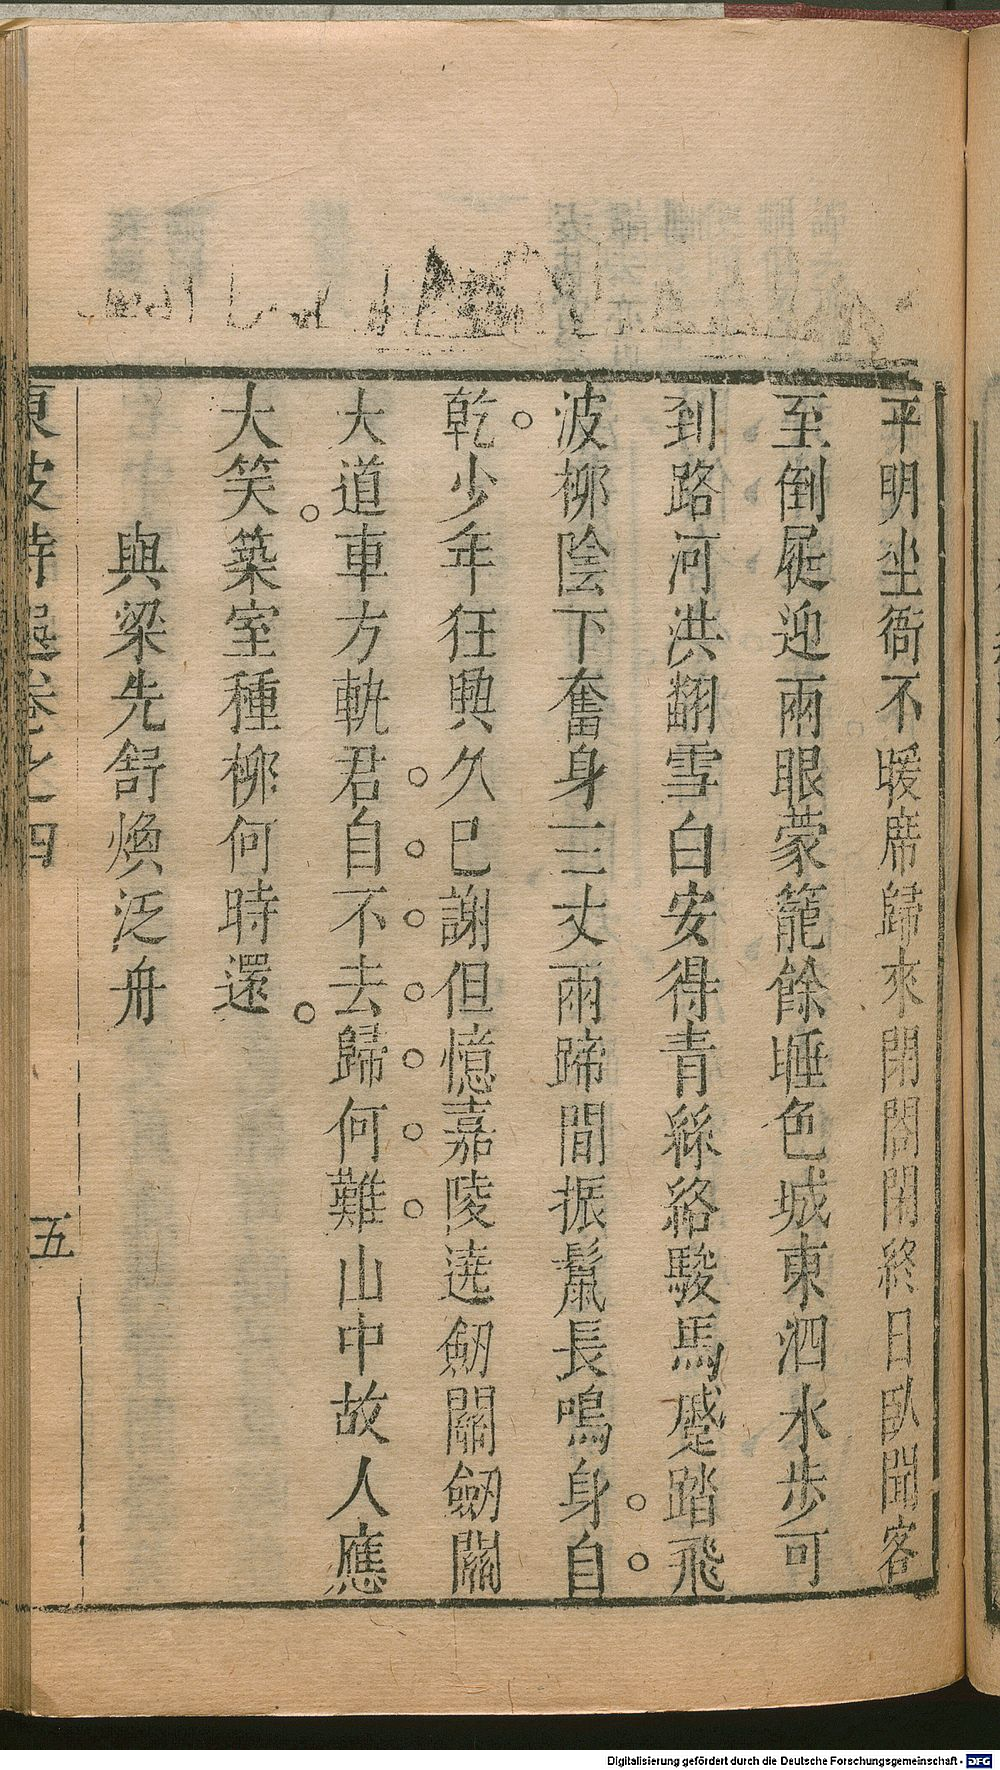 平明坐衙不暖席歸來閉閤閒終日臥聞客
至倒屣迎兩眼蒙籠餘睡色城東泗水步可
到路河洪翻雪白安得青絲絡駿馬蹙踏飛
波栁陰下奮身三丈兩蹄間振鬣長鳴身自
乾少年狂興久已謝但憶嘉陵遶劒關劒關
大道車方軌君自不去歸何難山中故人應
大笑築室種栁何時還
與梁先舒煥泛舟
東坡詩選卷之四
五
Digitalisierung gefördert durch die Deutsche Forschungsgemeinschaft - DFG